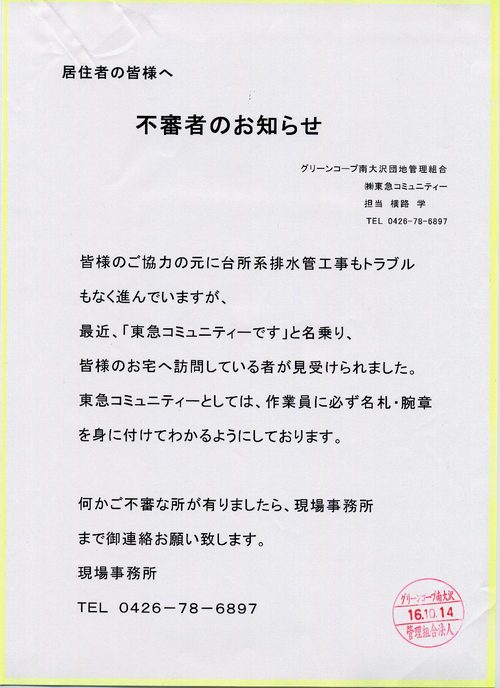 居住者の皆様へ
不審者のお知らせ
グリーンコープ南大沢団地管理組合
㈱東急コミュニティー
担当 横路 学
TEL 0426-78-6897
皆様のご協力の元に台所系排水管工事もトラブル
もなく進んでいますが、
最近、「東急コミュニティーです」と名乗り、
皆様のお宅へ訪問している者が見受けられました。
東急コミュニティーとしては、作業員に必ず名札・腕章
を身に付けてわかるようにしております。
何かご不審な所が有りましたら、現場事務所
まで御連絡お願い致します。
現場事務所
TEL 0426-78-6897
グリーンコープ南大沢
16.10.14
管理組合法人